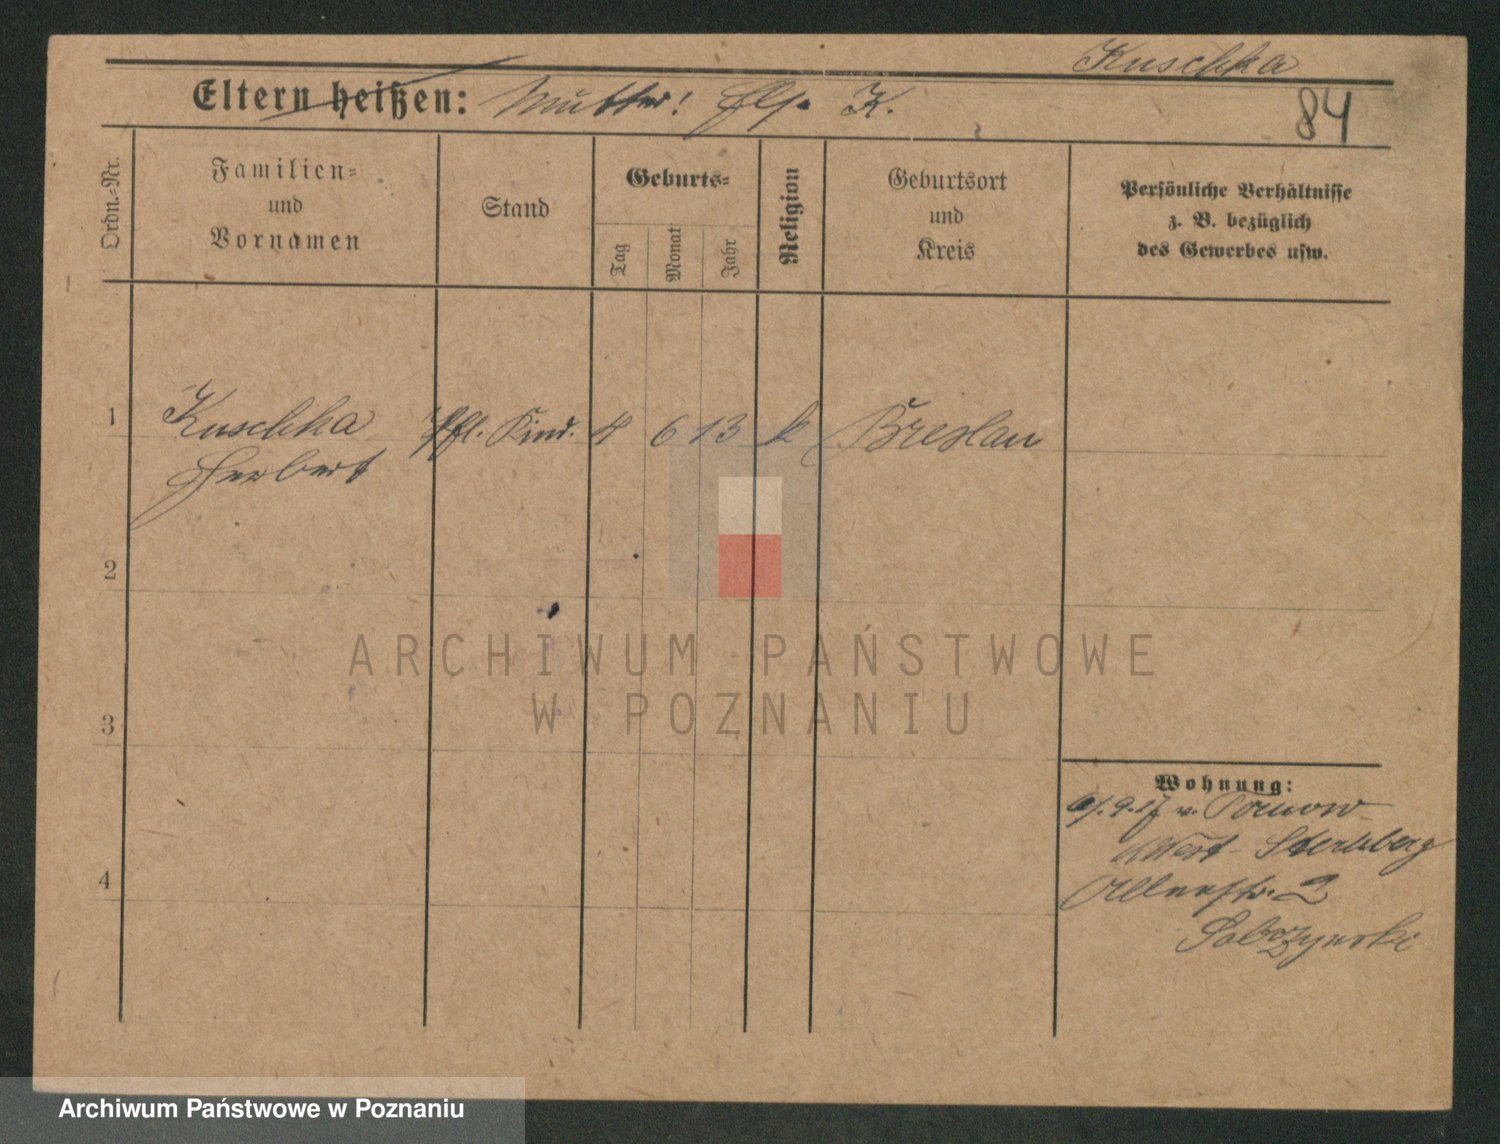 Kuschka
Eltern heißen: Mutter! K.
84
Ordn.-Nr.
Familien-
und
Vornamen
Stand
Geburts-
Tag
Monat
Jahr
Religion
Geburtsort
und
Kreis
Persönliche Verhältnisse
z. B. bezüglich
des Gewerbes usw.
1
Kuschka Pfl. Kind. 4 6 13 k Breslau
Herbert
2
ARCHIWUM PAŃSTWOWE
W POZNANIU
3
Wohnung:
9.17 v.
Sternberg
4
2
Sobczynski
Archiwum Państwowe w Poznaniu